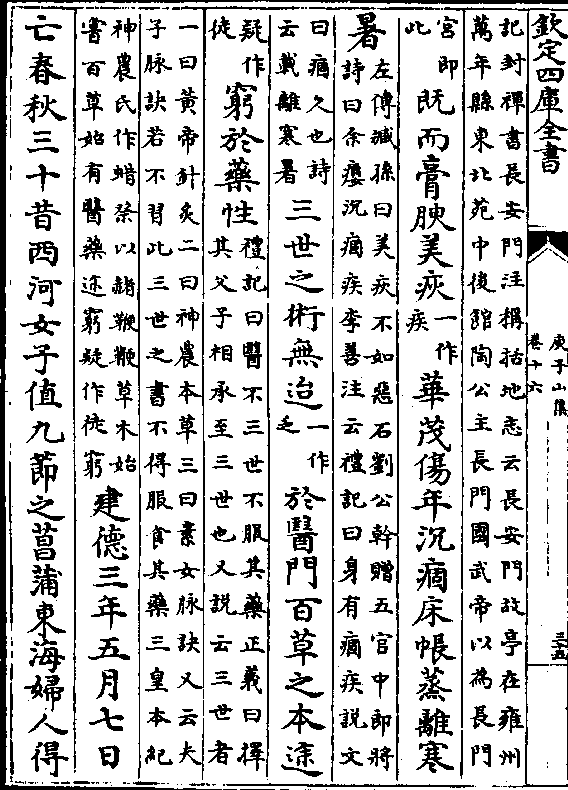 欽定四庫全書
庾子山集
卷十六
三五
記封禪書長安門注稱括地志云長安門故亭在雍州
萬年縣東北苑中後館陶公主長門國武帝以為長門
宮即
此
既而膏腴美疢
一作
疾
華茂傷年沉痼床帳蒸離寒
暑
左傳臧孫曰美疾不如惡石劉公幹贈五官中郎將
詩曰余嬰沉痼疾李善注云禮記曰身有痼疾説文
曰痼久也詩
云載離寒暑
三世之術無追
一作
乏
於醫門百草之本途
疑作
徒
窮於藥性
禮記曰醫不三世不服其藥正義曰擇
其父子相承至三世也又説云三世者
一曰黄帝針灸二曰神農本草三曰素女脉訣又云夫
子脉訣若不習此三世之書不得服食其藥三皇本紀
神農氏作蜡祭以赭鞭鞭草木始
嘗百草始有醫藥途窮疑作徒窮
建德三年五月七日
亡春秋三十昔西河女子值九節之菖蒲東海婦人得